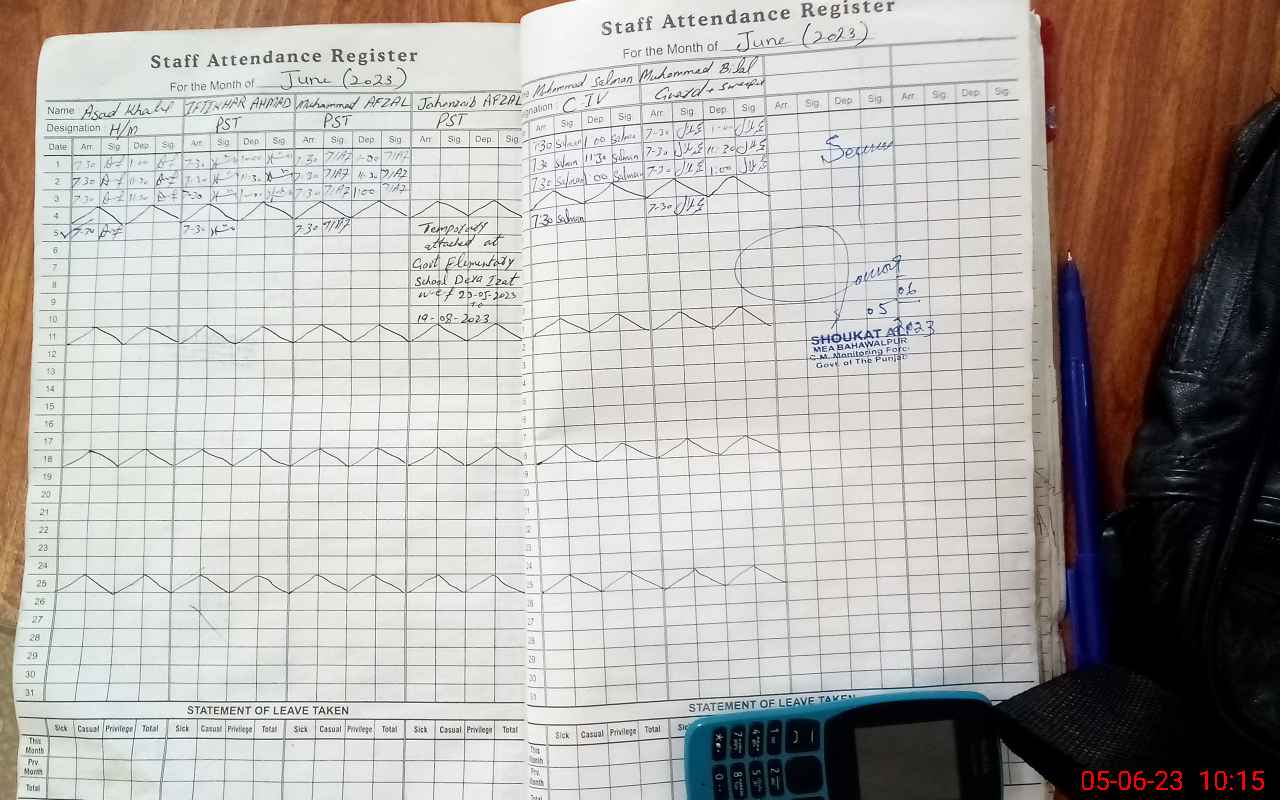 Staff Attendance Register
For the Month of June (2023)
Name Asad Khalil IFTIKHAR AHMAD Muhammad AFZAL Jahanzaib AFZAL
Designation H/M PST PST PST
Date Arr. Sig. Dep. Sig. Arr. Sig. Dep. Sig. Arr. Sig. Dep. Sig. Arr. Sig. Dep. Sig.
1 7.30 1:00 7.30 1:00 7.30 1:00
2 7.30 11.30 7.30 11.30 7.30 11.30
3 7.30 7.30 7.30 1:00
4
5 7.30 7.30 7.30 Temporary
6 attached at
7 Govt Elementary
8 School Dera Izat
9 w.e.f 29-05-2023
to
10 19-08-2023
11
12
13
14
15
16
17
18
19
20
21
22
23
24
25
26
27
28
29
30
31
STATEMENT OF LEAVE TAKEN
Sick Casual Privilege Total Sick Casual Privilege Total Sick Casual Privilege Total Sick Casual Privilege Total
This Month
Prv Month
Total
Staff Attendance Register
For the Month of June (2023)
Muhammad Salman Muhammad Bilal
Designation: C-IV Guard + Sweeper
Arr. Sig. Dep. Sig. Arr. Sig. Dep. Sig. Arr. Sig. Dep. Sig. Arr. Sig. Dep. Sig.
7:30 Salman 1 00 Salman 7-30 1-00
7:30 Salman 11:30 Salman 7-30 11-30
7:30 Salman 1 00 Salman 7-30 1:00
7.30 Salman 7-30
05
06
SHOUKAT
MEA BAHAWALPUR
C.M. Monitoring Force
Govt. of The Punjab
STATEMENT OF LEAVE TAKEN
Sick Casual Privilege Total
This Month
Prv Month
Total
05-06-23 10:15